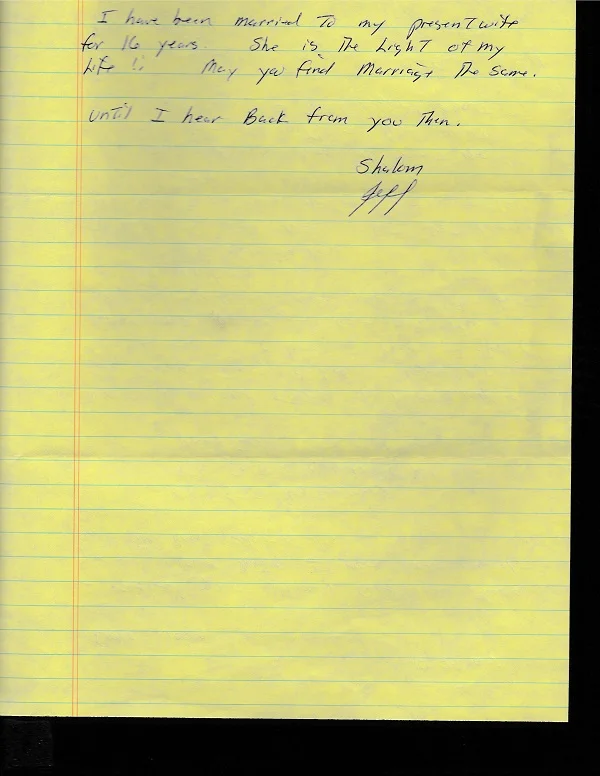 I have been married To my present wife
for 16 years. She is The Light of my
Life !! May you find Marriage The same.
until I hear Back from you Then.
Shalom
Jeff